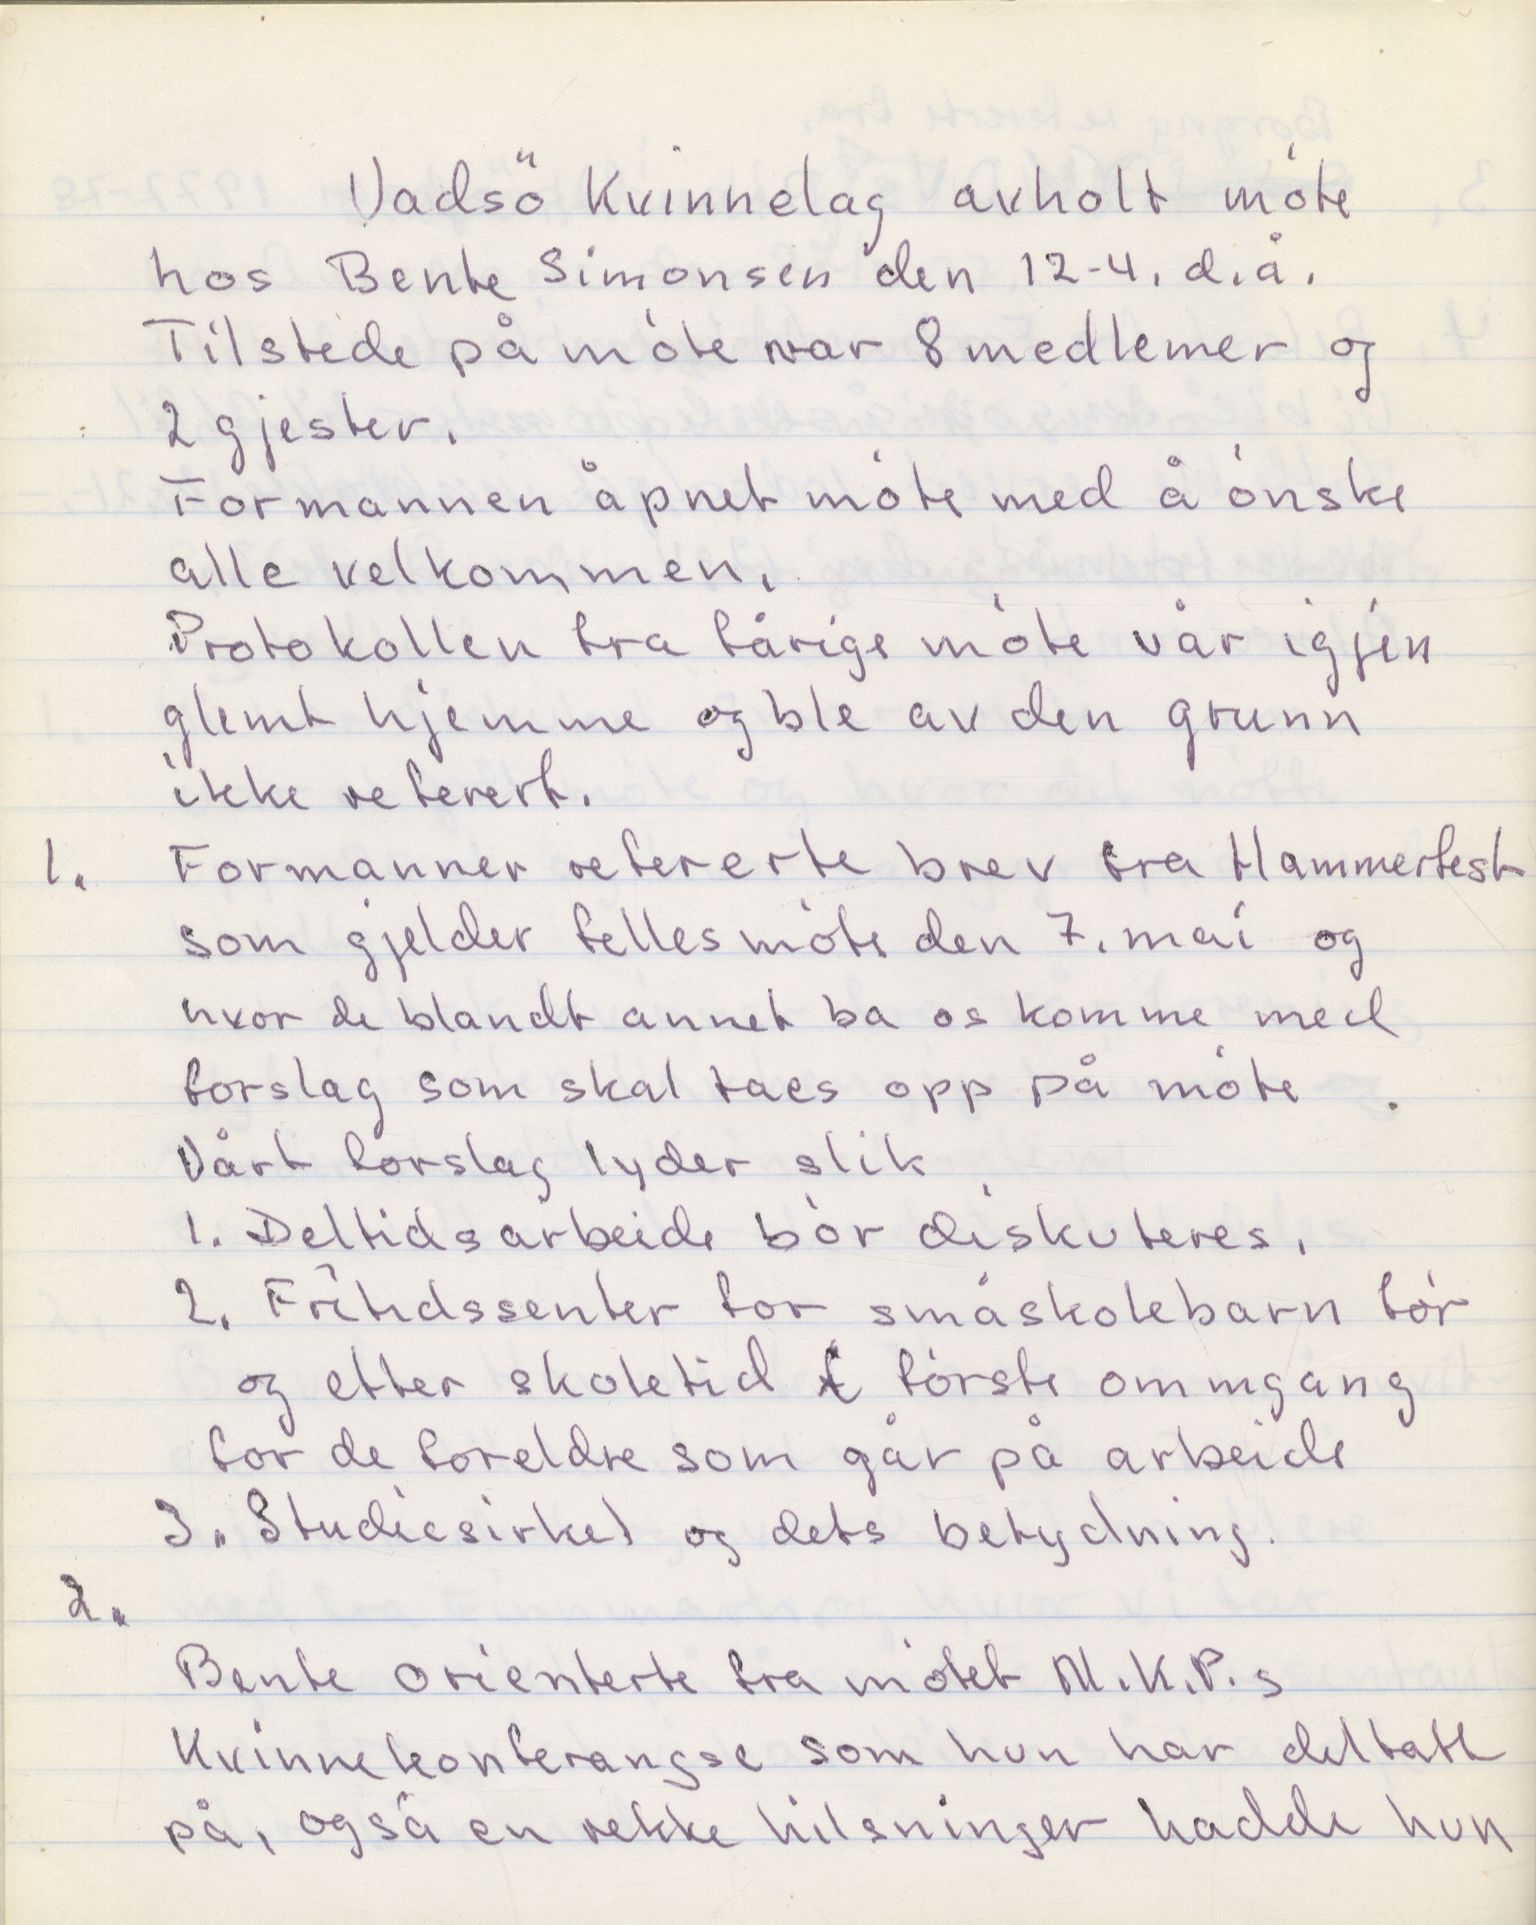 Vadsö Kvinnelag avholt móte
hos Bente Simonsen den 12-4. d.å.
Tilstede på móte var 8 medlemer og
2 gjester.
Formannen åpnet móte med å ónske
alle velkommen.
Protokollen fra fårige móte vår igjen
glemt hjemme og ble av den grunn
ikke referert.
1. Formannen refererte brev fra Hammerfest
som gjelder felles móte den 7. mai og
hvor de blandt annet ba os komme med
forslag som skal taes opp på móte.
Vårt forslag lyder slik
1. Deltidsarbeide bór diskuteres.
2. Fritidssenter for småskolebarn fór
og etter skoletid fórste ommgang
for de foreldre som går på arbeide
3. Studiesirkel og dets betydning.
2.
Bente orienterte fra mótet N.K.P.s
Kvinnekonferangse som hun har deltatt
på, også en rekke hilsninger hadde hun